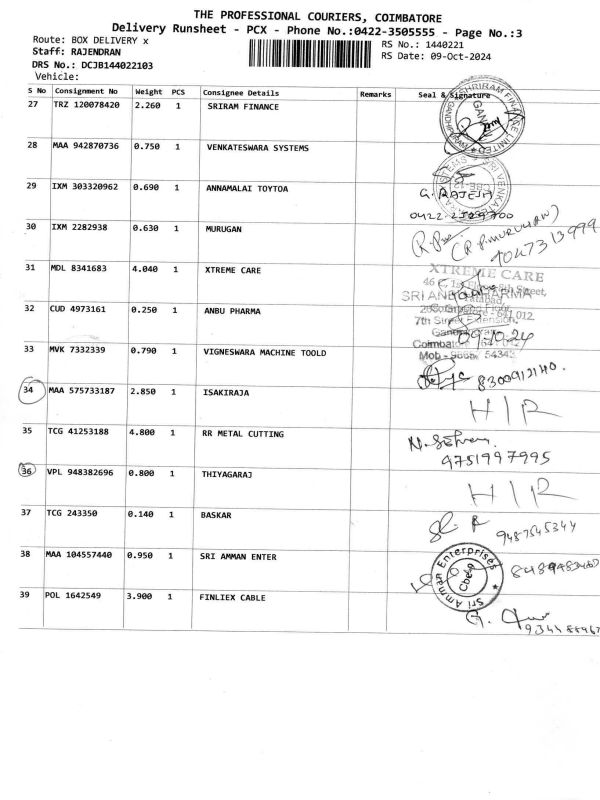 THE PROFESSIONAL COURIERS, COIMBATORE
Delivery Runsheet - PCX - Phone No.:0422-3505555 - Page No.:3
Route: BOX DELIVERY x
RS No.: 1440221
Staff: RAJENDRAN
RS Date: 09-Oct-2024
DRS No.: DCJB144022103
Vehicle:
S No Consignment No Weight PCS Consignee Details Remarks Seal & Signature
27 TRZ 120078420 2.260 1 SRIRAM FINANCE
28 MAA 942870736 0.750 1 VENKATESWARA SYSTEMS
29 IXM 303320962 0.690 1 ANNAMALAI TOYTOA G. RAJESH
30 IXM 2282938 0.630 1 MURUGAN
31 MDL 8341683 4.040 1 XTREME CARE
XTREME CARE
32 CUD 4973161 0.250 1 ANBU PHARMA
SRI ANBU PHARMA
7th Street Extension,
09-10-24
33 MVK 7332339 0.790 1 VIGNESWARA MACHINE TOOLD 8300912140.
34 MAA 575733187 2.850 1 ISAKIRAJA H I R
35 TCG 41253188 4.800 1 RR METAL CUTTING
9751997995
36 VPL 948382696 0.800 1 THIYAGARAJ H I R
37 TCG 243350 0.140 1 BASKAR
9487545344
38 MAA 104557440 0.950 1 SRI AMMAN ENTER
Sri Amman Enterprises
Cbe
39 POL 1642549 3.900 1 FINLIEX CABLE